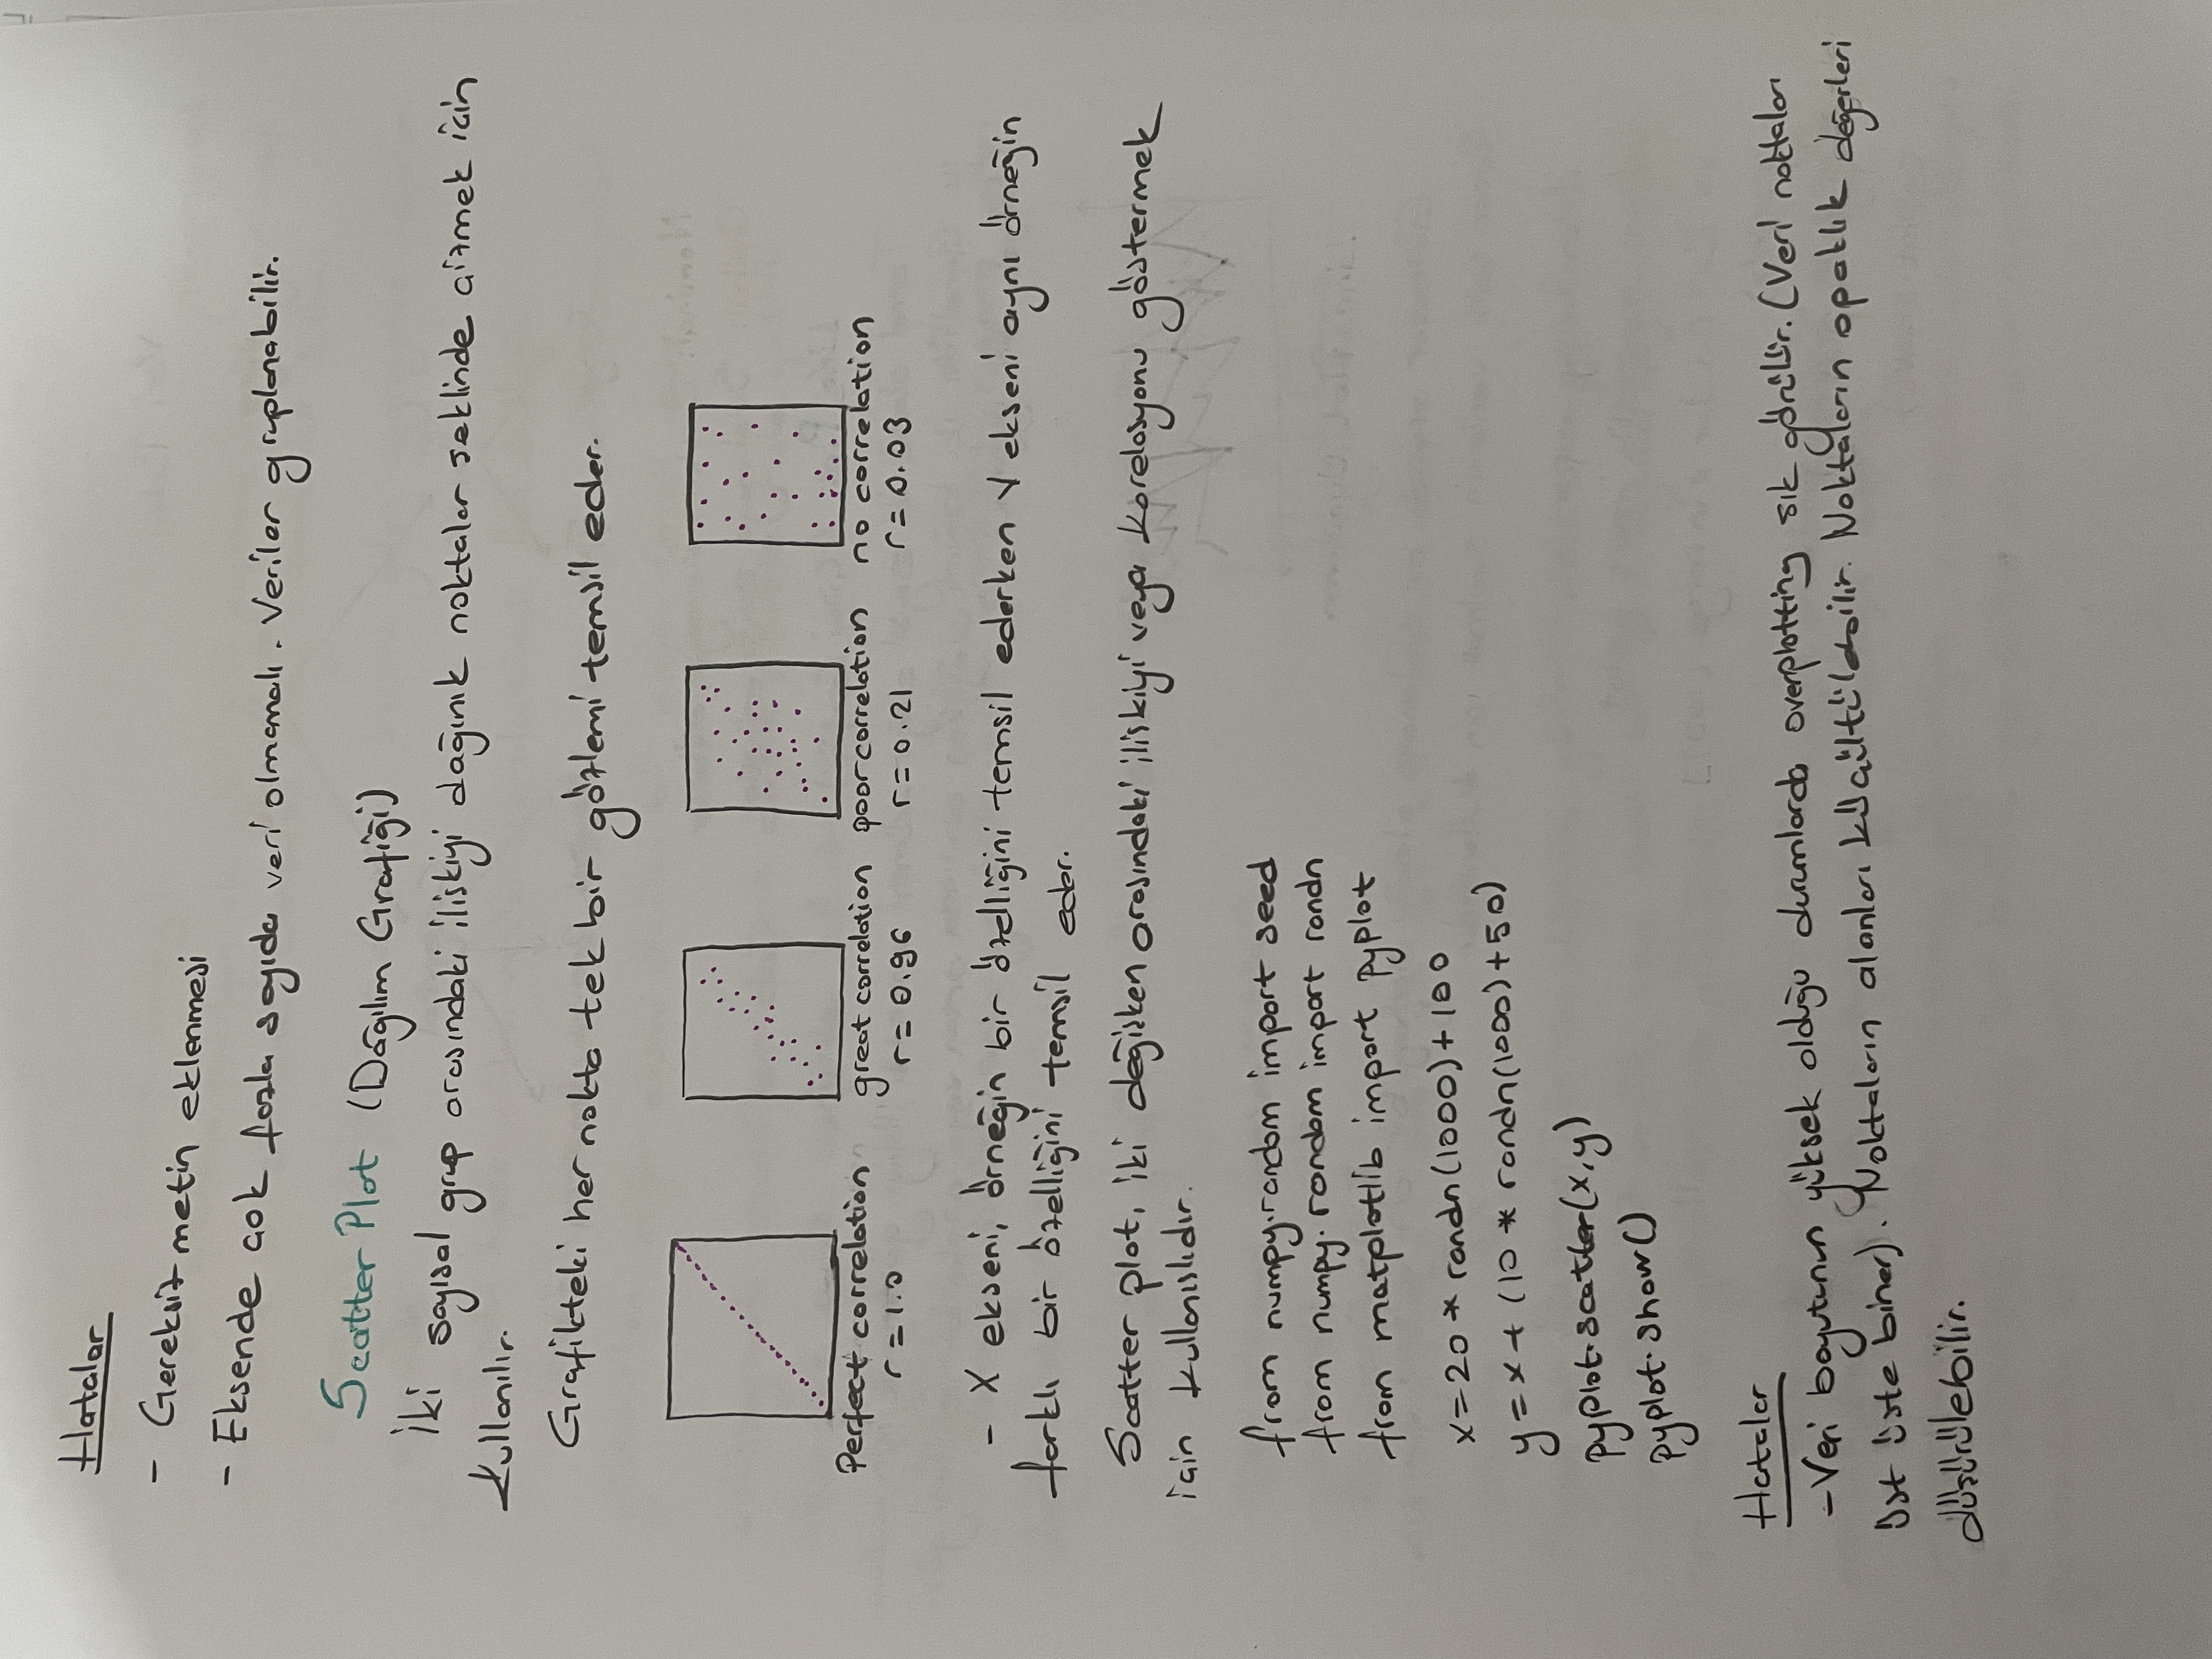 Hatalar
- Gereksiz metin eklenmesi
- Eksende çok fazla sayıda veri olmamalı. Veriler gruplanabilir.
Scatter Plot (Dağılım Grafiği)
İki sayısal grup arasındaki ilişkiyi dağınık noktalar şeklinde çizmek için
kullanılır.
Grafikteki her nokta tek bir gözlemi temsil eder.
Perfect correlation great correlation poor correlation no correlation
r = 1.0 r = 0.96 r = 0.21 r = 0.03
- X ekseni, örneğin bir özelliğini temsil ederken Y ekseni aynı örneğin
farklı bir özelliğini temsil eder.
Scatter plot, iki değişken arasındaki ilişkiyi veya korelasyonu göstermek
için kullanışlıdır.
from numpy.random import seed
from numpy.random import randn
from matplotlib import pyplot
x = 20 * randn(1000) + 100
y = x + (10 * randn(1000) + 50)
pyplot.scatter(x,y)
pyplot.show()
Hatalar
- Veri boyutunun yüksek olduğu durumlarda overplotting sık görülür. (Veri noktaları
üst üste biner). Noktaların alanları küçültülebilir. Noktaların opaklık değerleri
düşürülebilir.